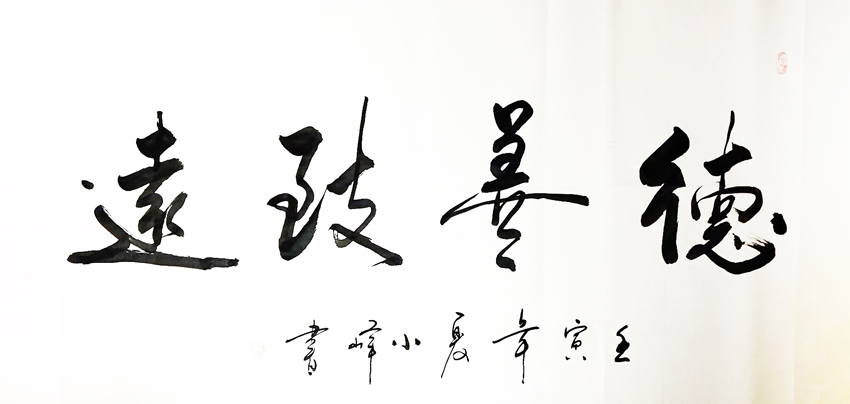 德善致遠
壬寅年夏小峰書